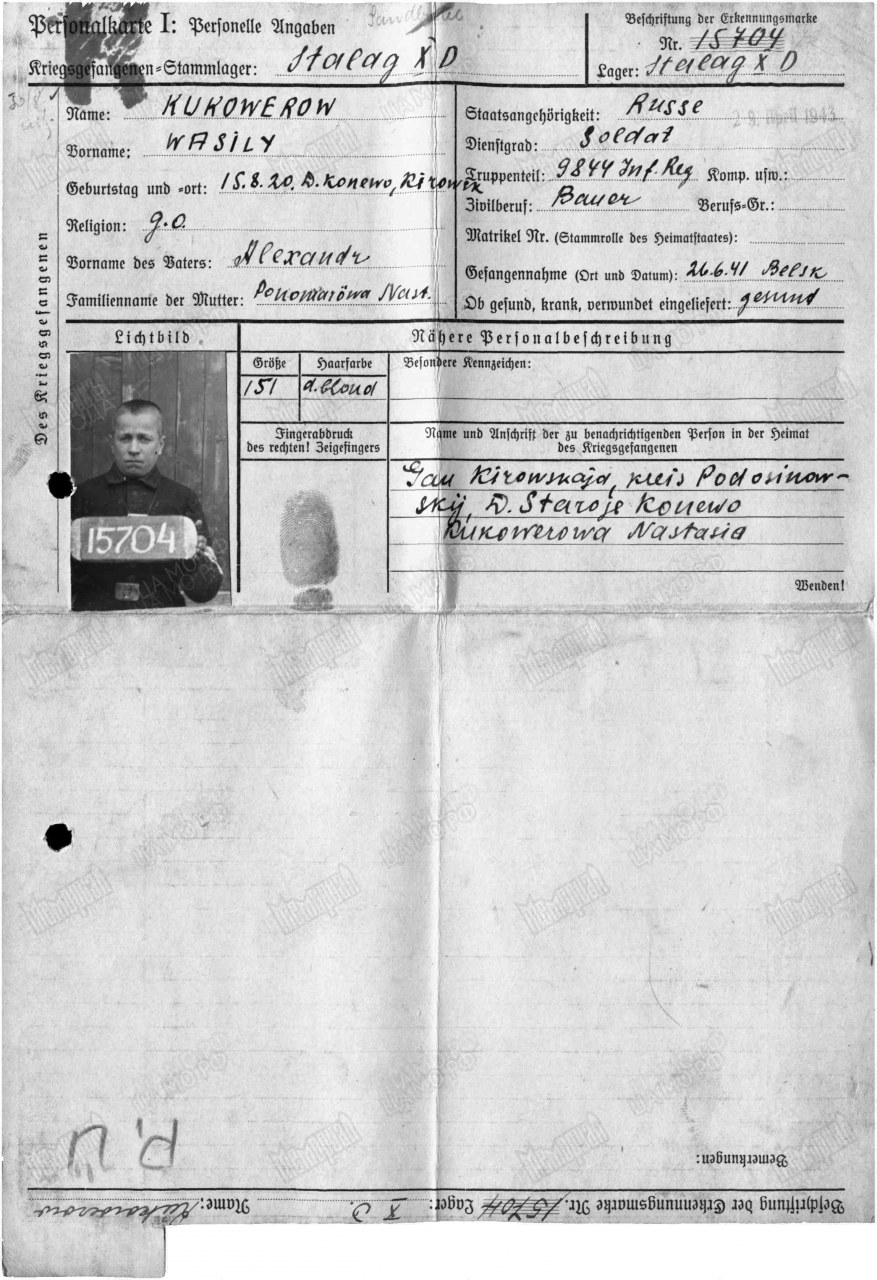 Personalkarte I: Personelle Angaben
Kriegsgefangenen-Stammlager: Stalag X D
Beschriftung der Erkennungsmarke
Nr. 15704
Lager: Stalag X D
Des Kriegsgefangenen
Name: KUKOWEROW
Vorname: WASILY
Geburtstag und -ort: 15.8.20, D. Konewo, Kirowsk
Religion: g.o.
Vorname des Vaters: Alexandr
Familienname der Mutter: Ponomaröwa Nast.
Staatsangehörigkeit: Russe
29. April 1943
Dienstgrad: Soldat
Truppenteil: 9844 Inf. Reg Komp. usw.:
Zivilberuf: Bauer Berufs-Gr.:
Matrikel Nr. (Stammrolle des Heimatstaates):
Gefangennahme (Ort und Datum): 26.6.41 Belsk
Ob gesund, krank, verwundet eingeliefert: gesund
Lichtbild
Nähere Personalbeschreibung
Größe Haarfarbe Besondere Kennzeichen:
151 d.blond
Fingerabdruck
des rechten! Zeigefingers
Name und Anschrift der zu benachrichtigenden Person in der Heimat
des Kriegsgefangenen
Gau Kirowskaja, kreis Podosinow-
skij, D. Staroje Konewo
Kukowerowa Nastasia
15704
Wenden!
Bemerkungen:
Beschriftung der Erkennungsmarke Nr. 15704 Lager: X D Name: Kukowerow